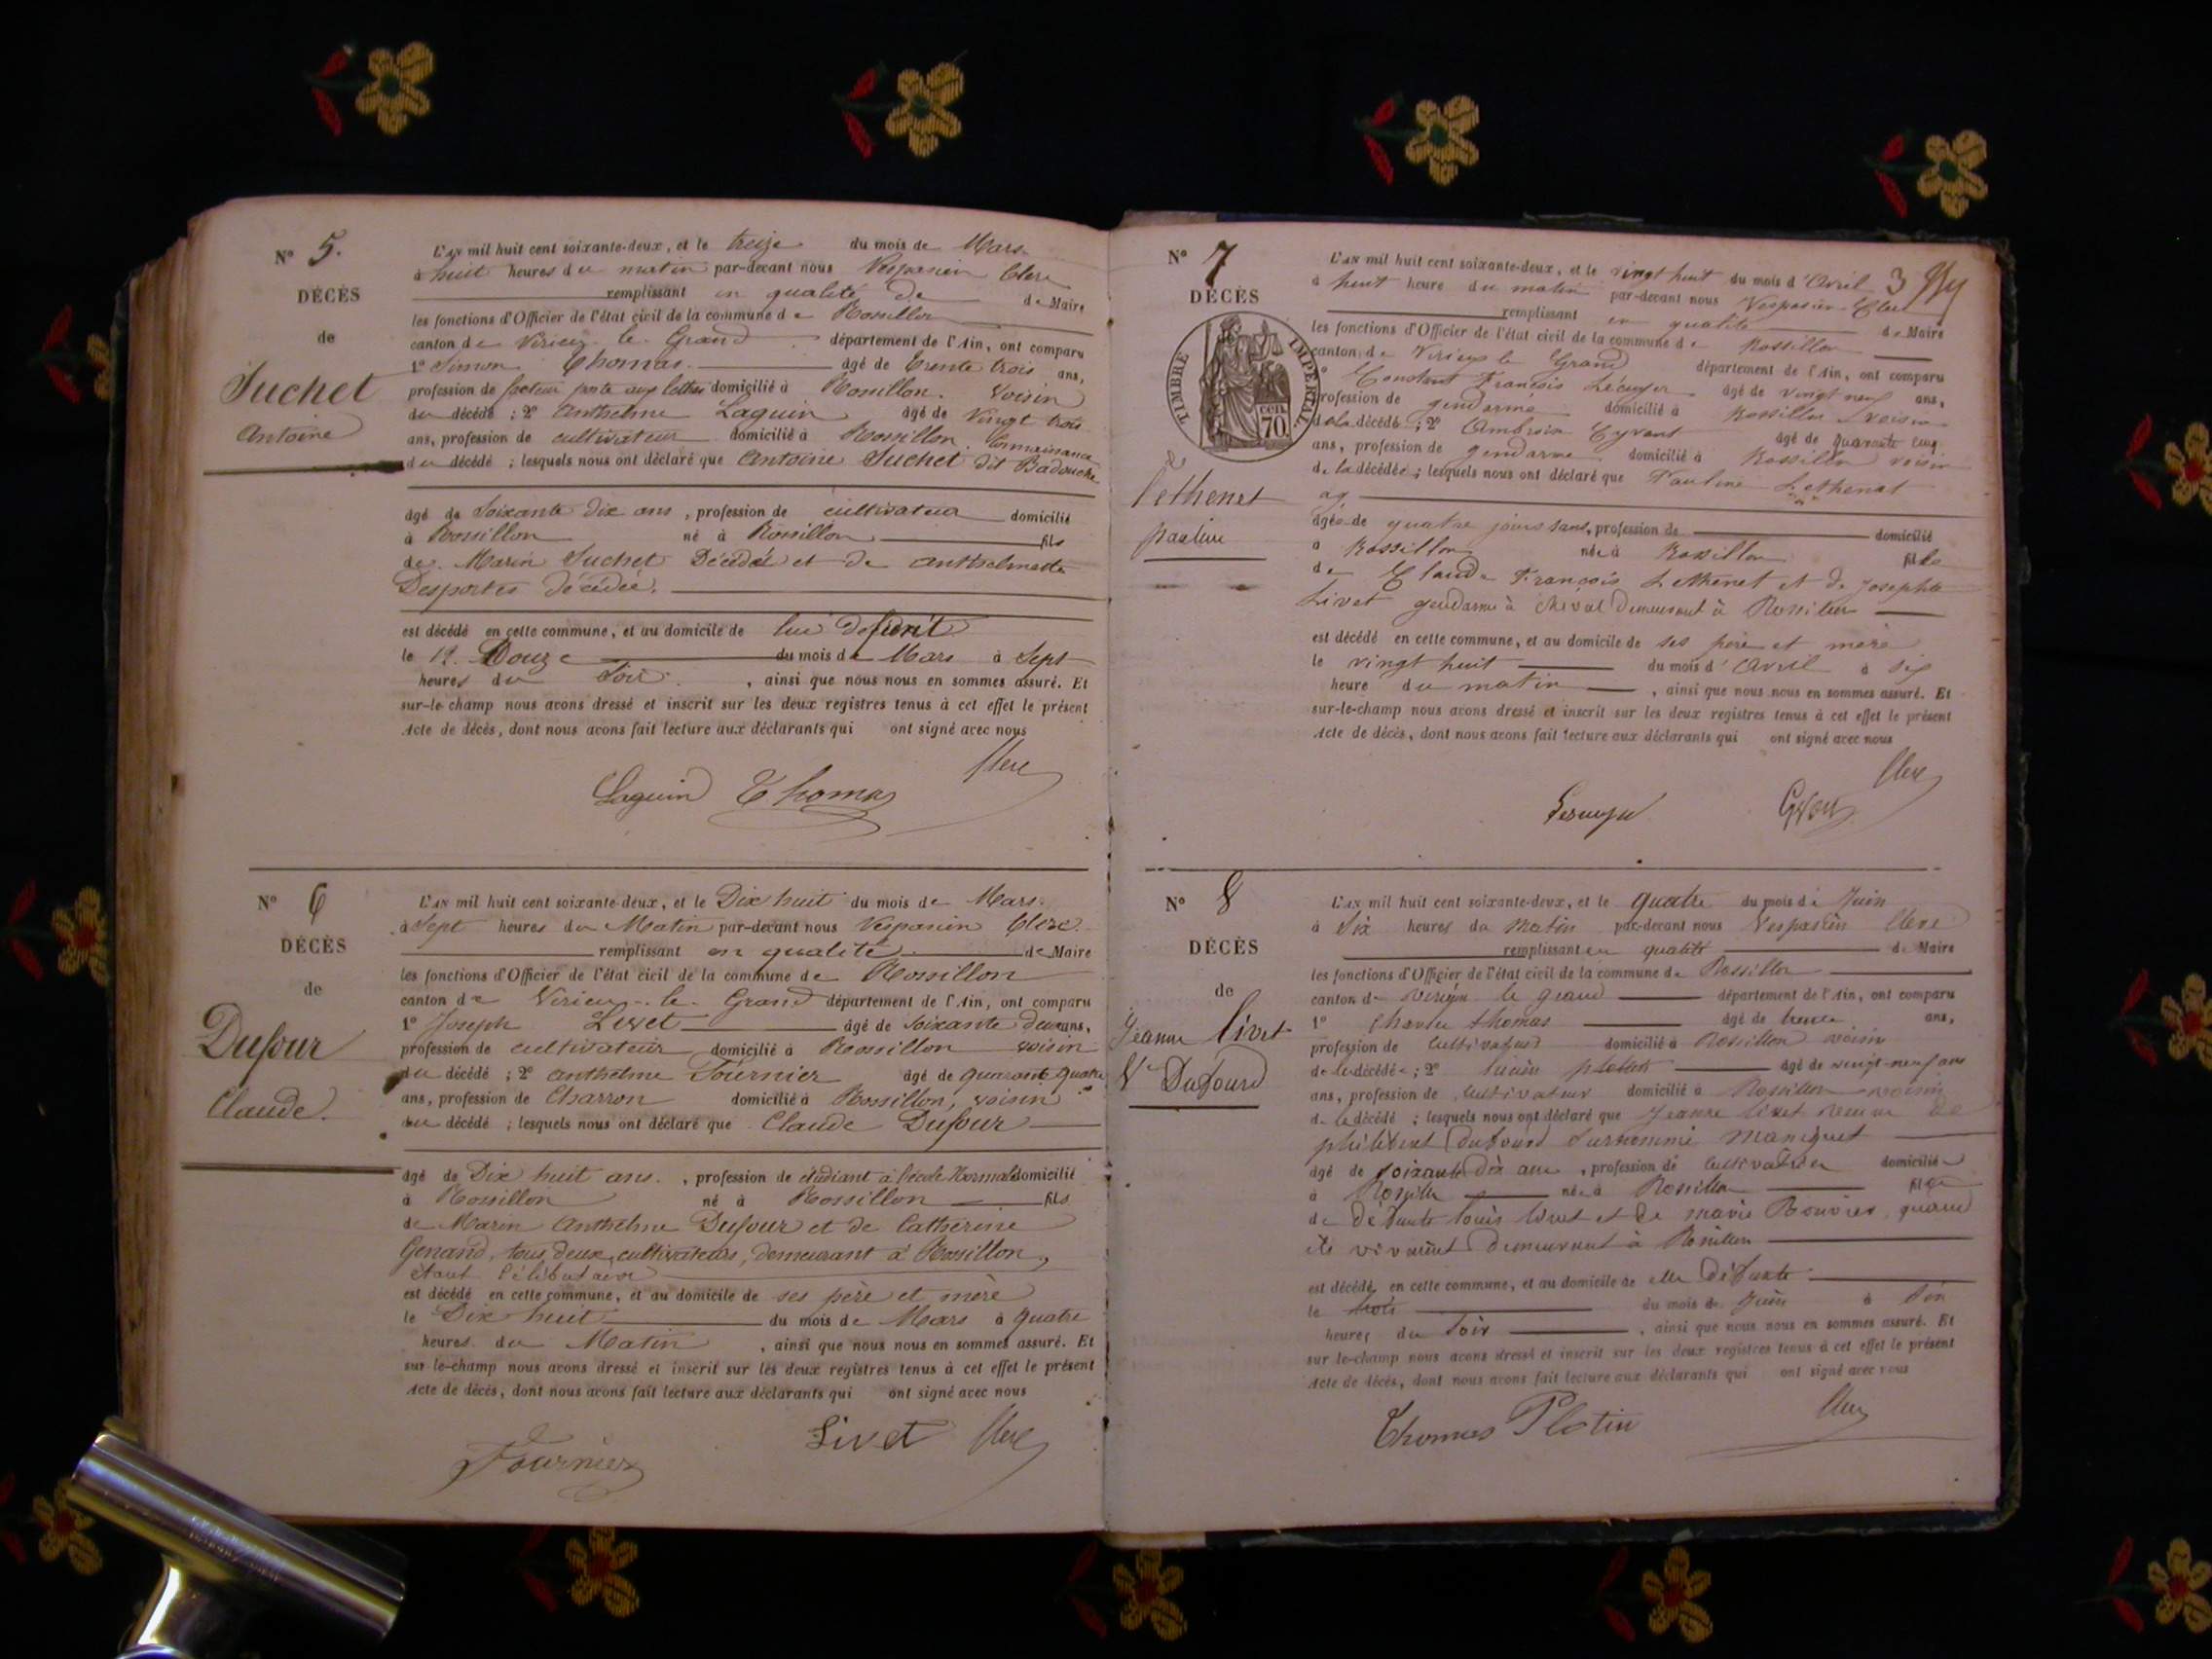 N° 5.
DÉCÈS
de
Suchet
Antoine
L'AN mil huit cent soixante-deux, et le treize du mois de Mars
à huit heures du matin par-devant nous Vespasien Clerc
remplissant en qualité de de Maire
les fonctions d'Officier de l'état civil de la commune de Rossillon
canton de Virieu le Grand département de l'Ain, ont comparu
1° Simon Thomas âgé de trente trois ans,
profession de facteur porte aux lettres domicilié à Rossillon. voisin
du décédé ; 2° Anthelme Laguin âgé de Vingt trois
ans, profession de cultivateur domicilié à Rossillon. Connaissance
du décédé ; lesquels nous ont déclaré que Antoine Suchet dit Badouche
âgé de Soixante dix ans, profession de cultivateur domicilié
à Rossillon né à Rossillon fils
de Marin Suchet Décédé et de anthelmette
Desportes décédée.
est décédé en cette commune, et au domicile de lui defunt
le 12. Douze du mois de Mars à Sept
heures du Soir, ainsi que nous nous en sommes assuré. Et
sur-le-champ nous avons dressé et inscrit sur les deux registres tenus à cet effet le présent
Acte de décès, dont nous avons fait lecture aux déclarants qui ont signé avec nous
Clerc
Laguin Thomas
N° 6
DÉCÈS
de
Dufour
Claude.
L'AN mil huit cent soixante-deux, et le Dix huit du mois de Mars.
à Sept heures du Matin par-devant nous Vespasien Clerc
remplissant en qualité de Maire
les fonctions d'Officier de l'état civil de la commune de Rossillon
canton de Virieu-le-Grand département de l'Ain, ont comparu
1° Joseph Livet âgé de soixante deux ans,
profession de cultivateur domicilié à Rossillon voisin
du décédé ; 2° anthelme Fournier âgé de quarante quatre
ans, profession de Charron domicilié à Rossillon, voisin
du décédé ; lesquels nous ont déclaré que Claude Dufour
âgé de Dix huit ans., profession de étudiant à l'école Normale domicilié
à Rossillon né à Rossillon fils
de Marin Anthelme Dufour et de Catherine
Genand, tous deux cultivateurs, demeurant à Rossillon,
étant Célibataire
est décédé en cette commune, et au domicile de ses père et mère
le Dix huit du mois de Mars à quatre
heures du Matin, ainsi que nous nous en sommes assuré. Et
sur-le-champ nous avons dressé et inscrit sur les deux registres tenus à cet effet le présent
Acte de décès, dont nous avons fait lecture aux déclarants qui ont signé avec nous
Livet Clerc
Fournier
N° 7
DÉCÈS
TIMBRE IMPÉRIAL
cen 70
de
Lethenet
pauline
L'AN mil huit cent soixante-deux, et le vingt huit du mois d'Avril 3
à huit heure du matin par-devant nous Vespasien Clerc
remplissant en qualité de Maire
les fonctions d'Officier de l'état civil de la commune de Rossillon
canton de Virieu le Grand département de l'Ain, ont comparu
Constant François Lécuyer âgé de vingt neuf ans,
profession de gendarme domicilié à Rossillon voisin
de la décédé ; 2° Ambroise âgé de quarante cinq
ans, profession de gendarme domicilié à Rossillon voisin
de la décédée ; lesquels nous ont déclaré que Pauline Lethenet
ag
âgée de quatre jours sans, profession de domicilié
à Rossillon née à Rossillon fille
de Claude François Lethenet et de Josephte
Livet gendarme à cheval demeurant à Rossillon
est décédé en cette commune, et au domicile de ses père et mère
le vingt huit du mois d'Avril à six
heure du matin, ainsi que nous nous en sommes assuré. Et
sur-le-champ nous avons dressé et inscrit sur les deux registres tenus à cet effet le présent
Acte de décès, dont nous avons fait lecture aux déclarants qui ont signé avec nous
Clerc
N° 8
DÉCÈS
de
Jeanne livet
Ve Dufourd
L'AN mil huit cent soixante-deux, et le quatre du mois de Juin
à Six heures du Matin par-devant nous Vespasien Clerc
remplissant en qualité de Maire
les fonctions d'Officier de l'état civil de la commune de Rossillon
canton de Virieu le grand département de l'Ain, ont comparu
1° thomas âgé de trente ans,
profession de cultivateur domicilié à Rossillon voisin
de la décédée ; 2° âgé de vingt-neuf ans
ans, profession de cultivateur domicilié à Rossillon voisin
de la décédé ; lesquels nous ont déclaré que Jeanne livet veuve de
philibert Dufourd surnommé Maniquet
âgé de soixante dix ans, profession de cultivatrice domiciliée
à Rossillon née à Rossillon fille
de défunts louis livet et de marie Bouvier quand
ils vivaient demeurant à Rossillon
est décédé en cette commune, et au domicile de elle défunte
le trois du mois de Juin à six
heures du Soir, ainsi que nous nous en sommes assuré. Et
sur-le-champ nous avons dressé et inscrit sur les deux registres tenus à cet effet le présent
Acte de décès, dont nous avons fait lecture aux déclarants qui ont signé avec nous
Thomas Plotin Clerc